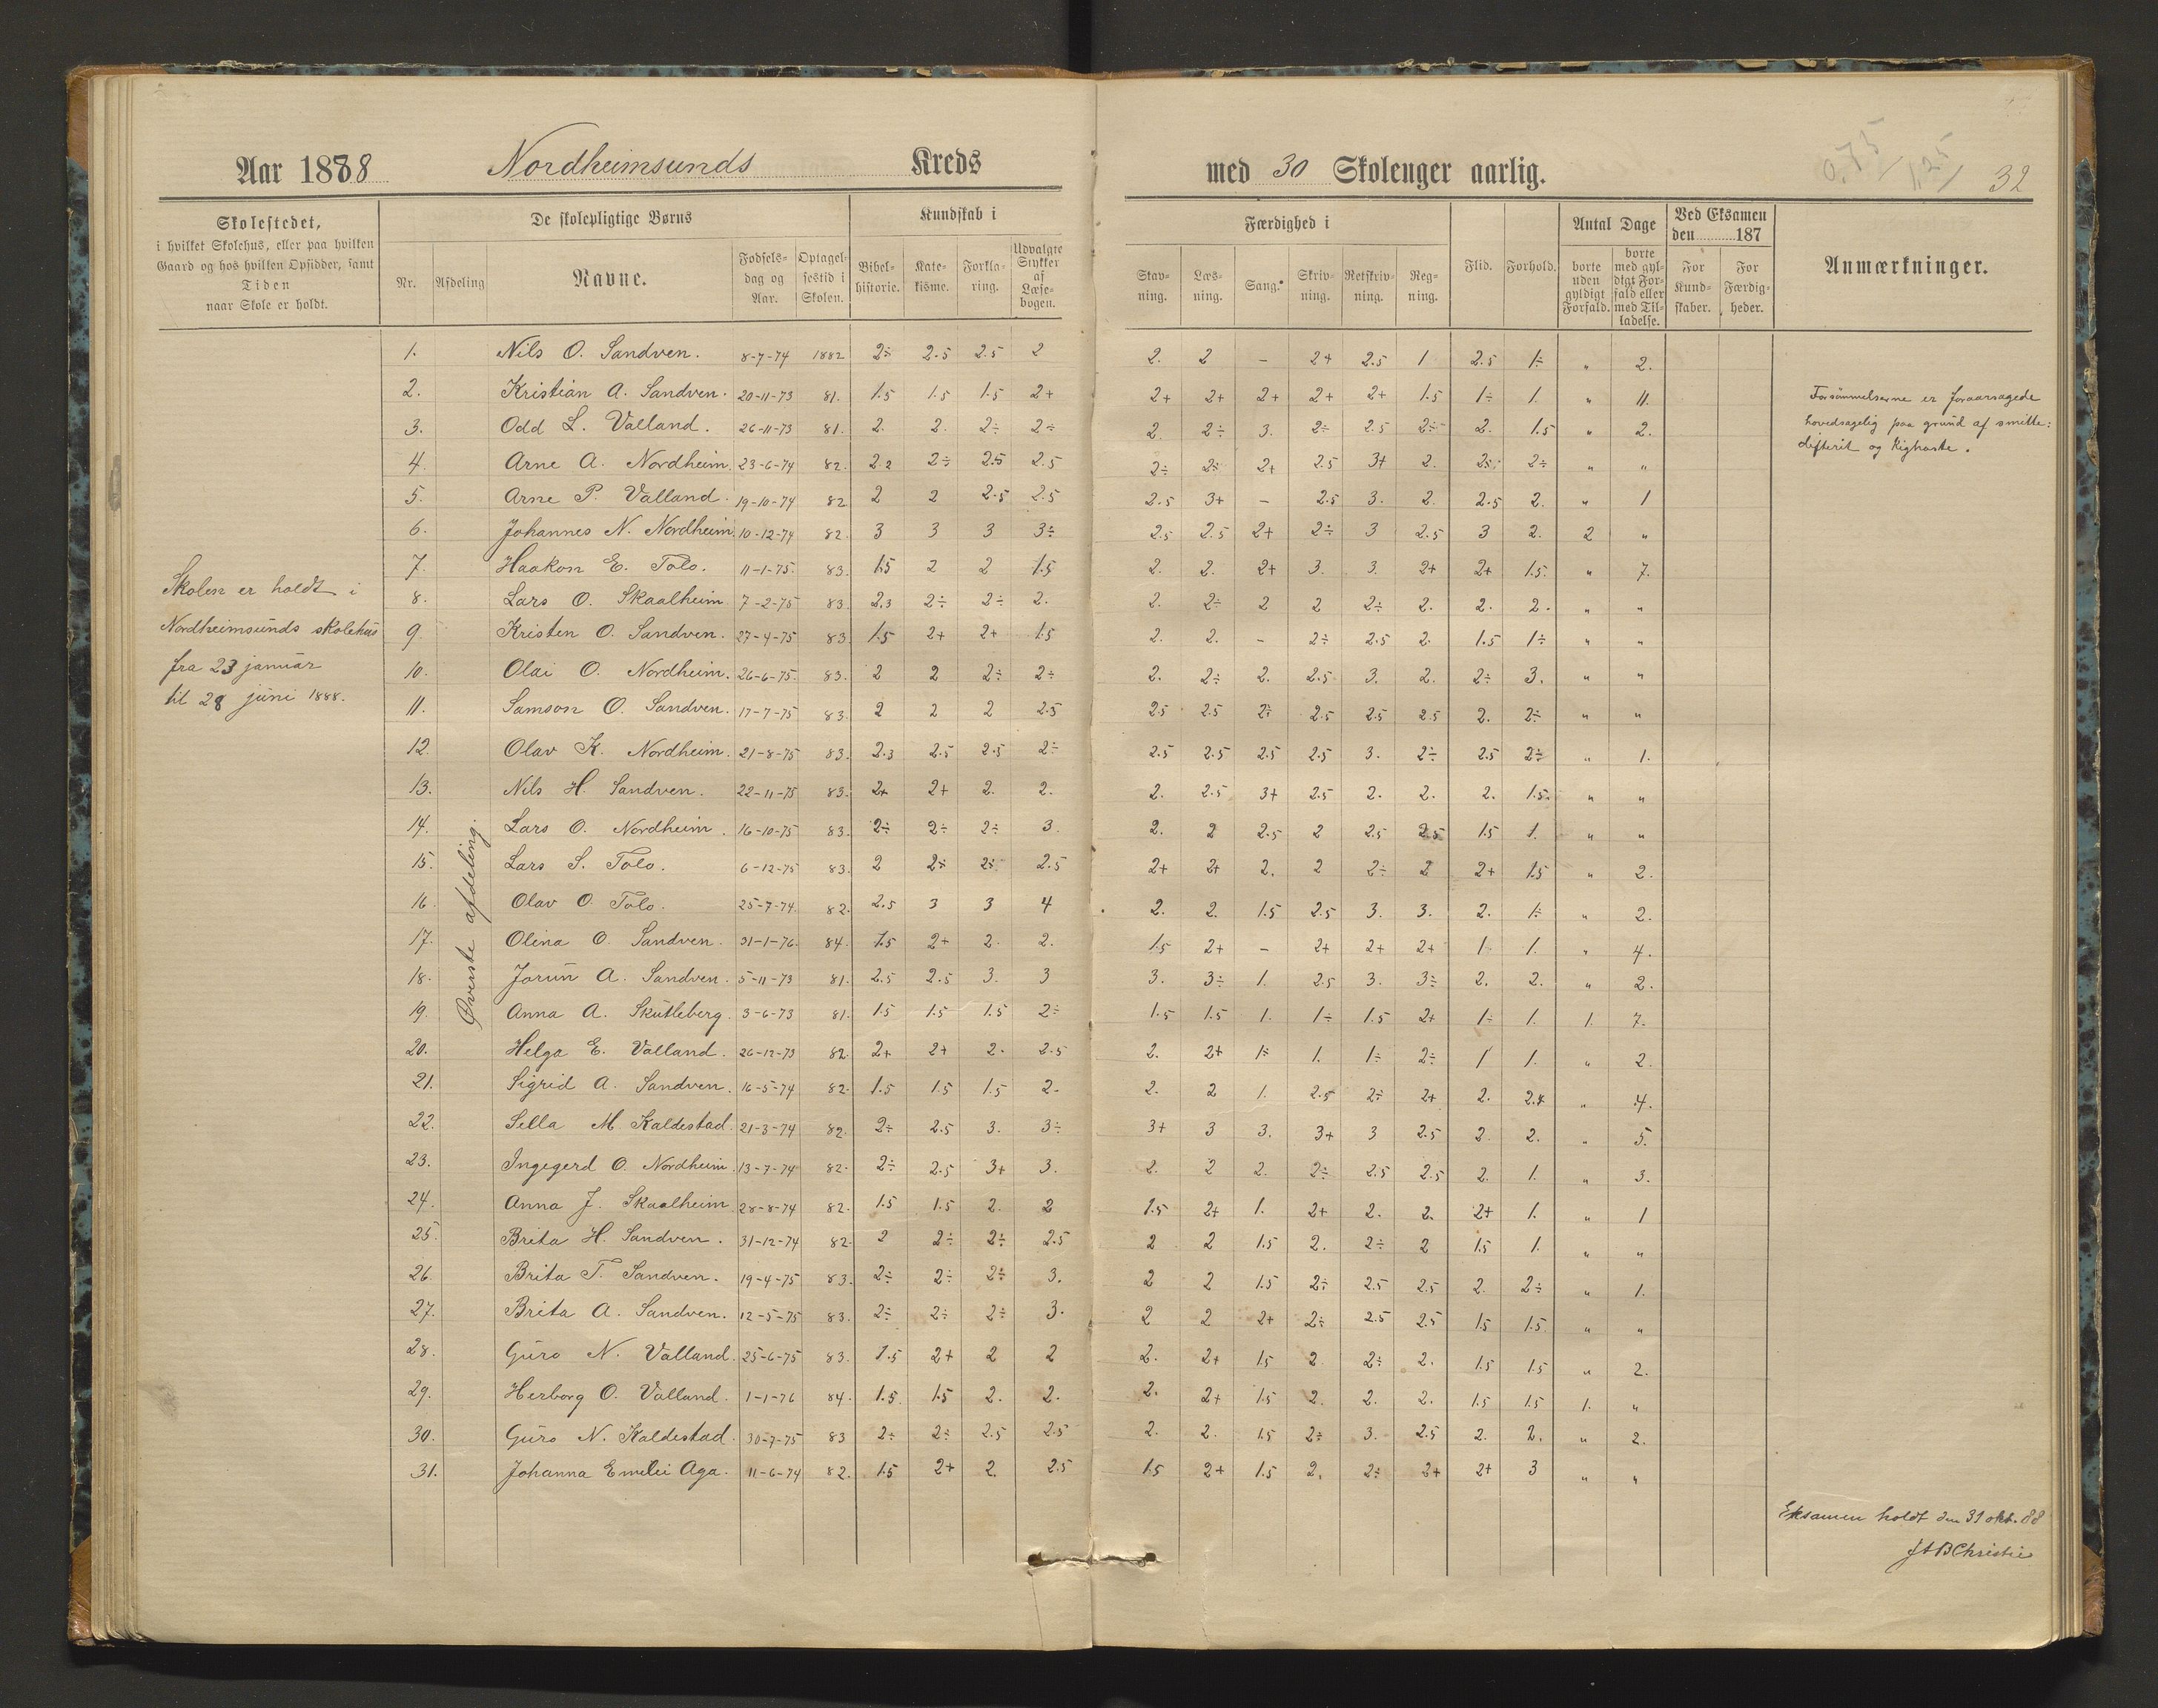 Aar 1888 Nordheimsunds Kreds med 30 Skoleuger aarlig. 0,75/ 1,25/ 32
Skolestedet,
i hvilket Skolehus, eller paa hvilken
Gaard og hos hvilken Opsidder, samt
Tiden
naar Skole er holdt.
De skolepligtige Børns
Nr. Afdeling Navne. Fødselsdag og Aar. Optagelsestid i Skolen.
Kundskab i
Bibelhistorie. Katekisme. Forklaring. Udvalgte Stykker af Læsebogen.
Færdighed i
Stavning. Læsning. Sang. Skrivning. Retskrivning. Regning.
Flid. Forhold.
Antal Dage
borte uden gyldigt Forfald. borte med gyldigt Forfald eller med Tilladelse.
Ved Eksamen den 187
For Kundskaber. For Færdigheder.
Anmærkninger.
Skolen er holdt i
Nordheimsunds skolehus
fra 23 januar
til 28 juni 1888.
Øverste afdeling.
1. Nils O. Sandven. 8-7-74 1882 2÷ 2.5 2.5 2 2. 2 – 2+ 2.5 1 2.5 1÷ " 2.
2. Kristian A. Sandven. 20-11-73 81. 1.5 1.5 1.5 2+ 2+ 2+ 2+ 2+ 2+ 1.5 1÷ 1. " 11.
3. Odd L. Valland. 26-11-73 81. 2. 2. 2÷ 2÷ 2. 2÷ 3. 2÷ 2.5 2÷ 2. 1.5 " 2.
4. Arne A. Nordheim. 23-6-74 82. 2.2 2÷ 2.5 2.5 2÷ 2÷ 2+ 2.5 3+ 2. 2÷ 2÷ " "
5. Arne P. Valland. 19-10-74 82 2 2 2.5 2.5 2.5 3+ – 2.5 3. 2. 2.5 2. " 1
6. Johannes N. Nordheim. 10-12-74 82. 3 3 3 3÷ 2.5 2.5 2+ 2÷ 3 2.5 3 2. 2 "
7. Haakon E. Tolo. 11-1-75. 83. 1.5 2 2 1.5 2. 2. 2+ 3. 3. 2+ 2+ 1.5. " 7.
8. Lars O. Skaalheim 7-2-75 83. 2.3 2÷ 2÷ 2. 2. 2÷ 2 2 2÷ 2. 2. 2. " "
9. Kristen O. Sandven. 27-4-75 83. 1.5 2+ 2+ 1.5 2. 2. – 2÷ 2.5 2. 1.5 1÷ " "
10. Olai O. Nordheim. 26-6-75. 83. 2 2 2÷ 2÷ 2. 2÷ 2. 2.5 3. 2. 2÷ 3. " "
11. Samson O. Sandven. 17-7-75 83. 2 2 2 2.5 2.5 2.5 2÷ 2.5 2.5 2.5 2. 2÷ " "
12. Olav K. Nordheim. 21-8-75 83. 2.3 2.5 2.5 2÷ 2.5 2.5 2.5 2.5 3. 2÷ 2.5 2÷ " 1.
13. Nils H. Sandven. 22-11-75 83. 2+ 2+ 2. 2. 2. 2.5 3+ 2.5 2. 2. 2. 1.5. " "
14. Lars O. Nordheim. 16-10-75 83. 2÷ 2÷ 2÷ 3. 2. 2 2.5 2 2.5 2.5 1.5 1. " "
15. Lars S. Tolo. 6-12-75 83. 2 2÷ 2÷ 2.5 2+ 2+ 2. 2 2÷ 2 2+ 1.5 " 2.
16. Olav O. Tolo. 25-7-74. 82. 2.5 3 3 4 2. 2. 1.5 2.5 3. 3. 2. 1÷ " 2.
17. Olina O. Sandven. 31-1-76. 84. 1.5 2+ 2. 2. 1.5 2+ – 2+ 2+ 2+ 1 1. " 4.
18. Jorun A. Sandven. 5-11-73 81. 2.5 2.5 3. 3 3. 3÷ 1. 2.5 3. 3÷ 2. 2. " 2.
19. Anna A. Skutleberg. 3-6-73 81. 1.5 1.5 1.5 2÷ 1.5 1.5 1. 1÷ 1.5 2+ 1÷ 1. 1. 7.
20. Helga E. Valland. 26-12-73 82. 2+ 2+ 2. 2.5 2. 2+ 1÷ 1. 1÷ 2÷ 1 1. " 2.
21. Sigrid A. Sandven. 16-5-74 82. 1.5 1.5 1.5 2. 2. 2 1. 2.5 2÷ 2+ 2. " 4.
22. Sella M. Kaldestad. 21-3-74 82. 2÷ 2.5 3. 3÷ 3+ 3 3. 3+ 3 2.5 2. 2. " 5.
23. Ingegerd O. Nordheim. 13-7-74 82. 2÷ 2.5 3+ 3. 2. 2 2. 2÷ 2.5 2.5 2. 1. " 3.
24. Anna J. Skaalheim. 28-8-74 82. 1.5 1.5 2. 2 1.5 2+ 1. 2+ 2. 2. 2+ 1. " 1
25. Brita H. Sandven. 31-12-74 82. 2 2÷ 2÷ 2.5 2 2 1.5 2. 2÷ 2 1.5 1. " "
26. Brita T. Sandven. 19-4-75 83. 2÷ 2÷ 2÷ 3. 2 2 1.5 2÷ 2.5 2.5 2. 2÷ " 1.
27. Brita A. Sandven. 12-5-75 83. 2÷ 2÷ 2÷ 3. 2 2 2+ 2÷ 2.5 2.5 1.5 1.5 " "
28. Guro N. Valland. 25-6-75 83. 1.5 2+ 2 2 2. 2+ 1.5 2 2÷ 2. 1.5 1.5 " 2.
29. Herborg O. Valland. 1-1-76 84. 1.5 1.5 2. 2. 2. 2+ 1.5 2. 2. 2. 1.5 1.5 1. "
30. Guro N. Kaldestad. 30-7-75 83 2÷ 2÷ 2.5 2.5 2. 2. 1.5 2÷ 3. 2.5 2. 2. " 2.
31. Johanna Emelie Aga. 11-6-74 82. 1.5 2+ 2. 2.5 1.5 2+ 1.5 2. 2÷ 2+ 2+ 3 " "
Forsømmelserne er foraarsagede
hovedsagelig paa grund af smitte:
difterit og Kighoste.
Eksamen holdt den 31 okt. 88
Christie